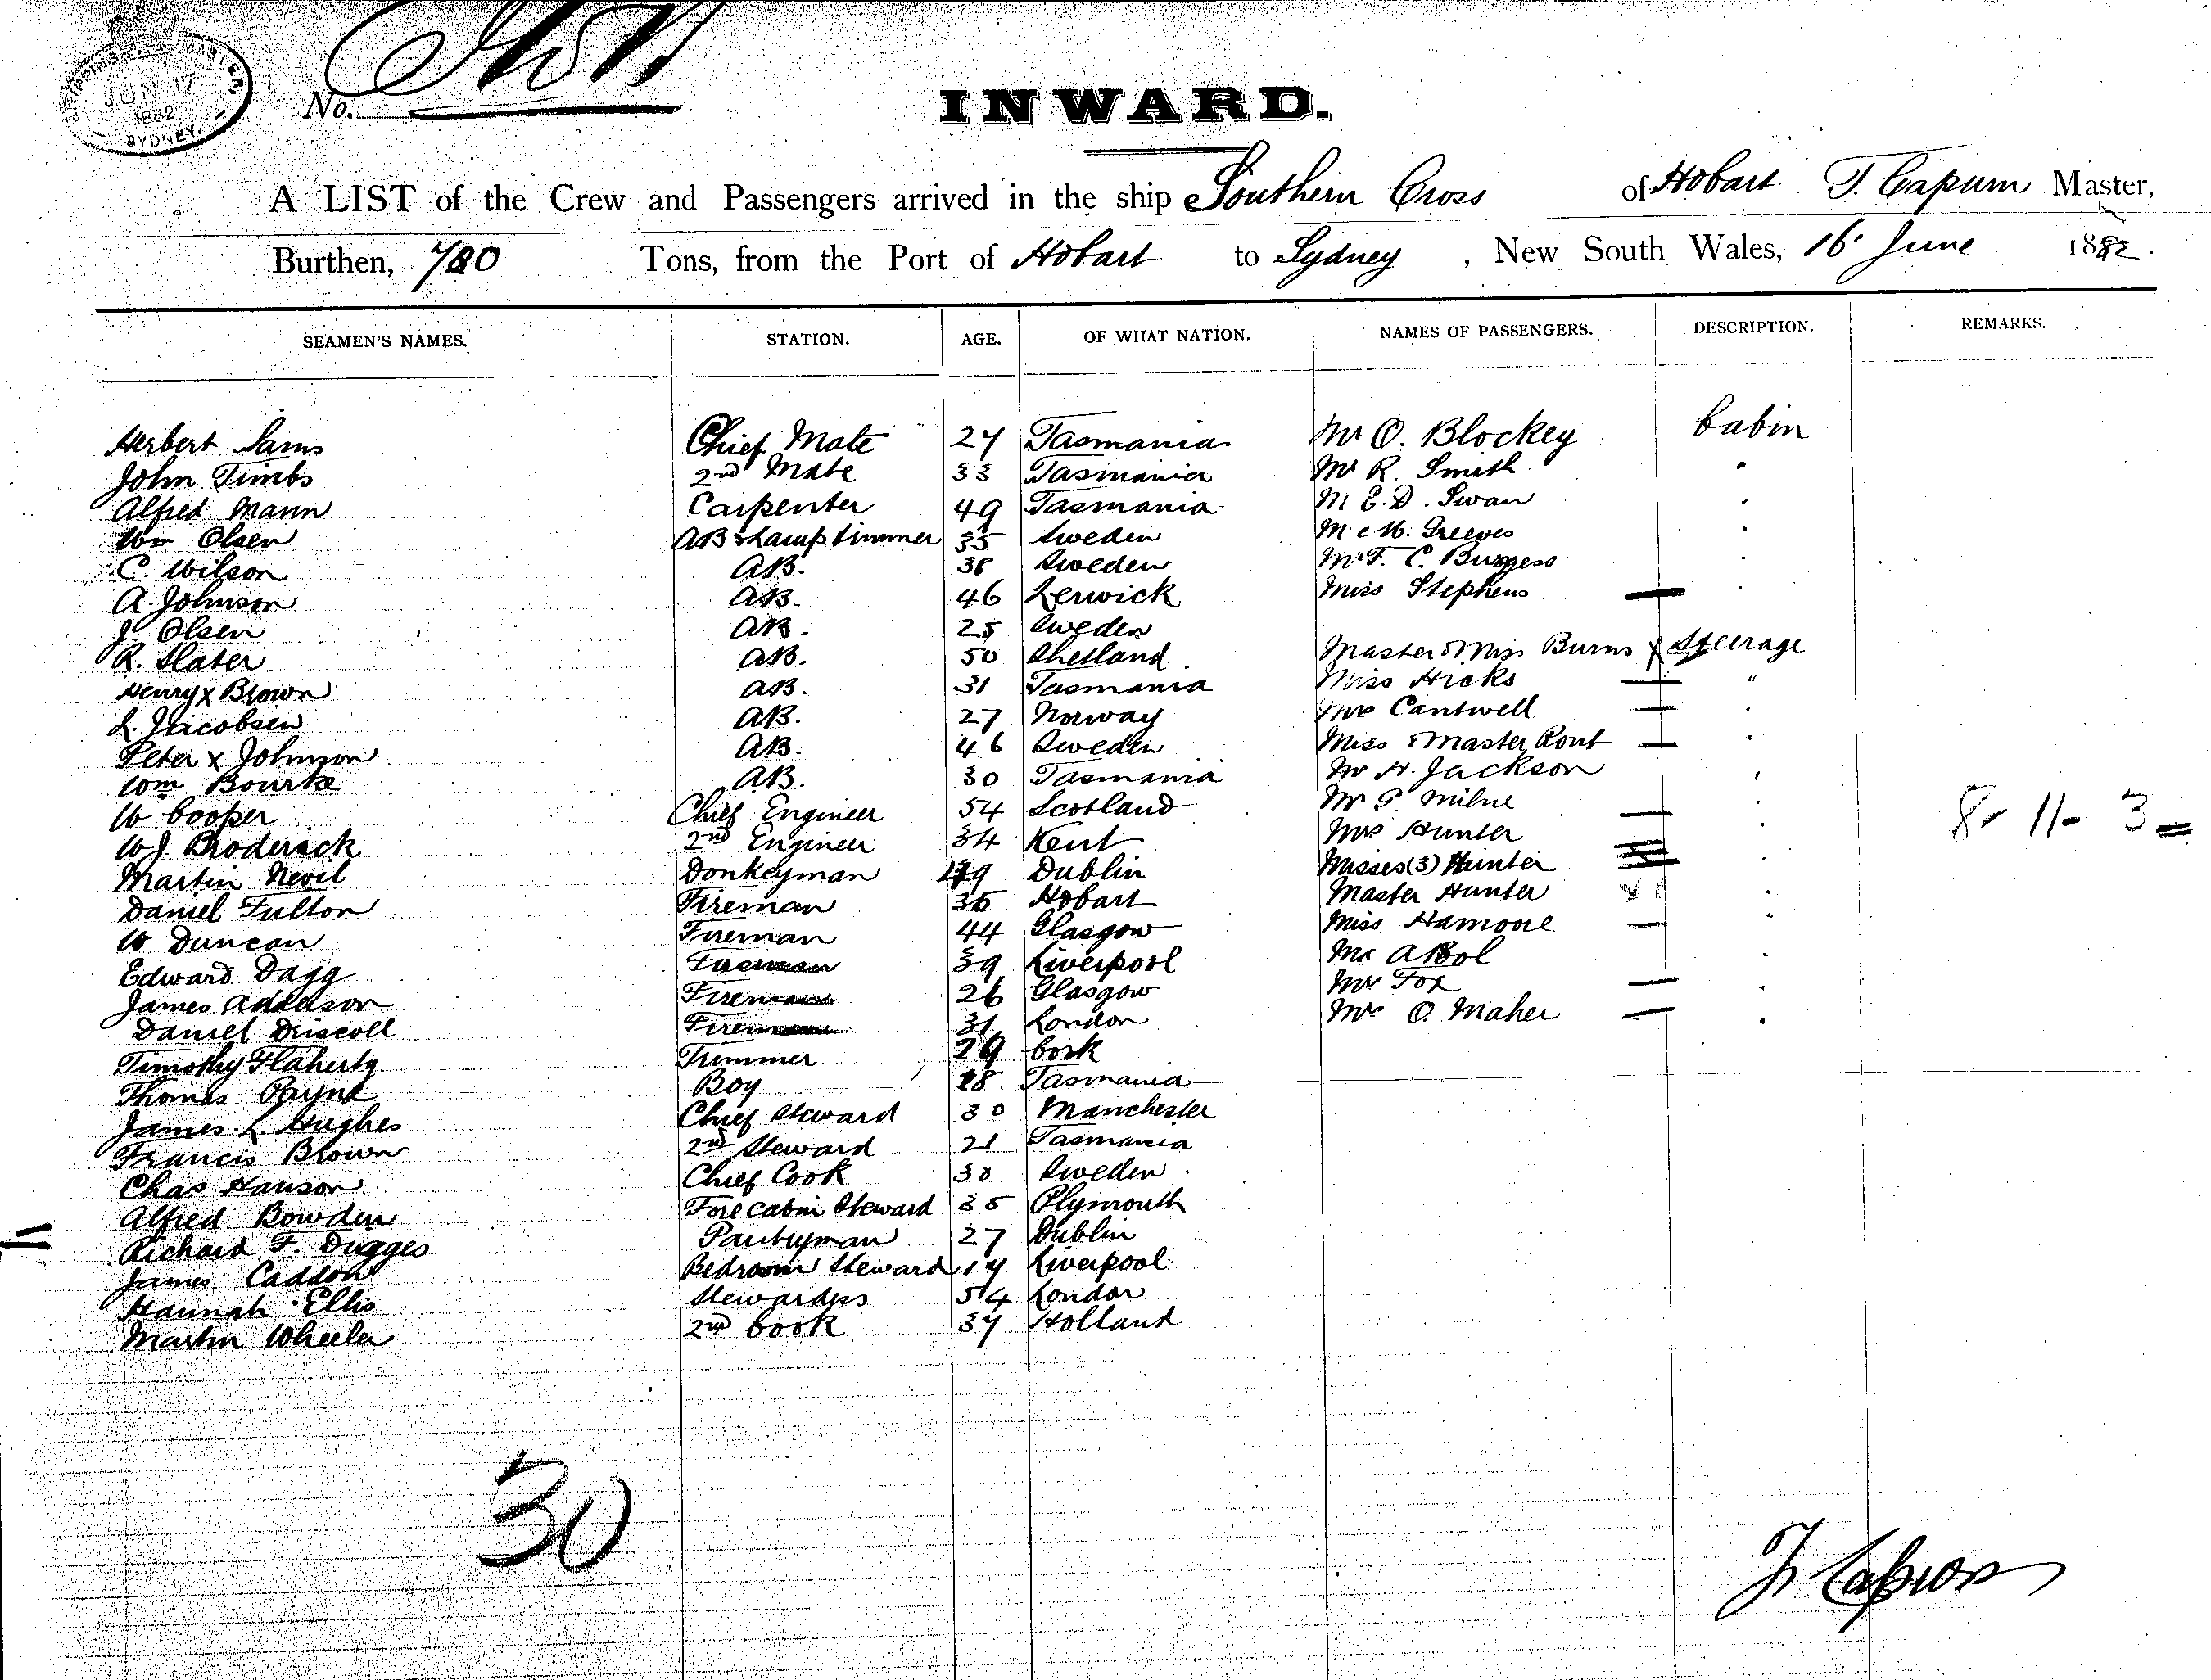 SHIPPING MASTER
JUN 17
1882
SYDNEY.
No.
INWARD.
A LIST of the Crew and Passengers arrived in the ship Southern Cross of Hobart T. Capurn Master,
Burthen, 780 Tons, from the Port of Hobart to Sydney, New South Wales, 16 June 1882.
SEAMEN'S NAMES. STATION. AGE. OF WHAT NATION. NAMES OF PASSENGERS. DESCRIPTION. REMARKS.
Herbert Sams Chief Mate 27 Tasmania Mr O. Blockey Cabin
John Timbs 2nd Mate 33 Tasmania Mr R. Smith "
Alfred Mann Carpenter 49 Tasmania M E. D. Swan "
Wm Olsen AB & Lamp trimmer 35 Sweden M c M. Greeves "
C. Wilson AB. 38 Sweden Mr F. C. Burgess "
A. Johnson AB. 46 Lerwick Miss Stephens "
J. Olsen AB. 25 Sweden
R. Slater AB. 50 Shetland. Master & Miss Burns X Steerage
Henry x Brown AB. 31 Tasmania Miss Hicks "
L. Jacobsen AB. 27 Norway Mrs Cantwell "
Peter x Johnson AB. 46 Sweden Miss & Master Rout "
Wm Bourke AB. 30 Tasmania Mr H. Jackson "
W Cooper Chief Engineer 54 Scotland Mr G. Milne "
W J Broderick 2nd Engineer 34 Kent Mrs Hunter " 8 - 11 - 3 =
Martin Nevil Donkeyman Dublin Misses (3) Hunter "
Daniel Fulton Fireman 35 Hobart Master Hunter "
W Duncan Fireman 44 Glasgow Miss Hamoore "
Edward Dagg Fireman 39 Liverpool Mr A Bol "
James Addason Fireman 26 Glasgow Mrs Fox "
Daniel Driscoll Fireman 31 London Mrs O. Maher "
Timothy Flaherty Trimmer 29 Cork
Thomas Payne Boy 18 Tasmania
James L. Hughes Chief Steward 30 Manchester
Francis Brown 2nd Steward 21 Tasmania
Chas Hanson Chief Cook 30 Sweden
Alfred Bowden Fore cabin Steward 35 Plymouth
Richard F. Dugges Pantryman 27 Dublin
James Caddon Bedroom Steward 17 Liverpool
Hannah Ellis Stewardess 54 London
Martin Wheeler 2nd Cook 37 Holland
30